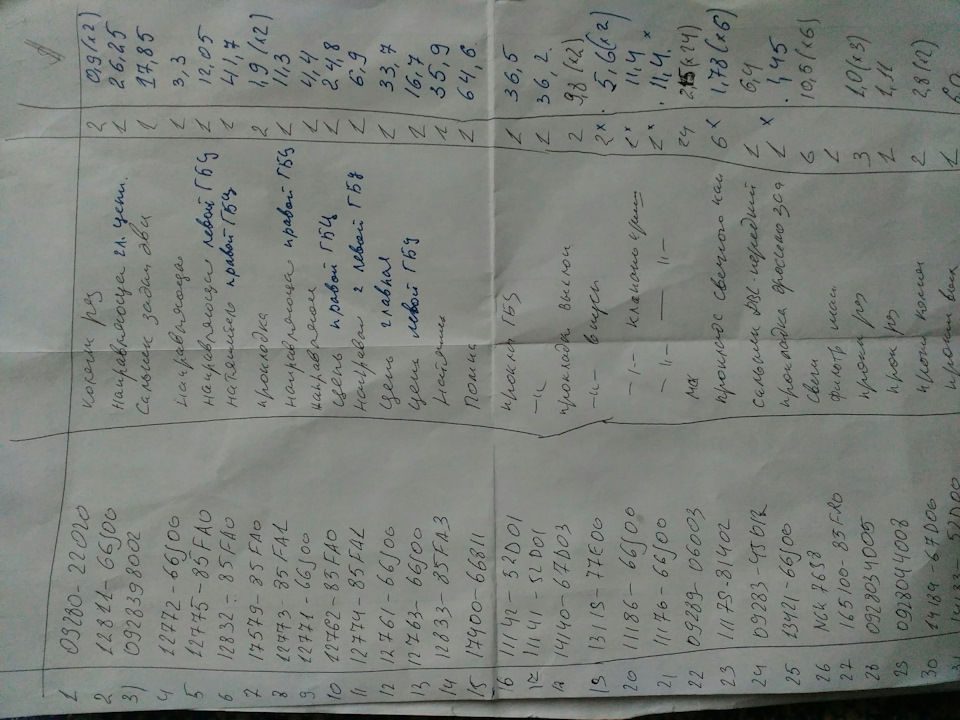 1 09280-22020 колечки рез 2 0,9 (x2)
2 12811-66J00 Направляюща гл. цепи. 1 26,25
3 0928398002 Сальник задний дви 1 17,85
4 12772-66J00 Направляюща 1 3,3
5 12775-85FA0 Направляюща левой ГБЦ 1 12,05
6 12832-85FA0 натяжитель правой ГБЦ 1 41,7
7 17579-85FA0 прокладка 2 1,9 (x2)
8 12773-85FA1 направляюща правой ГБЦ 1 11,3
9 12771-66J00 направляющ 1 4,4
10 12762-83FA0 Цепь правой ГБЦ 1 24,8
11 12774-85FA1 направл 2 левой ГБЦ 1 6,9
12 12761-66J00 Цепь главная 1 33,7
13 12763-66J00 цепь левой ГБЦ 1 16,7
14 12833-85FA3 Натяжитель 1 35,9
15 17400-66811 Помпа 1 64,6
16 11142-52D01 прокл ГБЦ 1 36,5
17 11141-52D01 -"- 1 36,2
18 14140-67D03 прокладка выхлоп 2 9,8 (x2)
19 13119-77E00 -"- впуск 2x 5,6 (x2)
20 11186-66J00 -"- клапанно крыш 1x 11,4 x
21 11176-66J00 -"- -"- 1x 11,4
22 09289-06003 мск 24 2,15 (x24)
23 11179-81402 проклас свечного кан 6x 1,78 (x6)
24 09283-45012 сальник ДВС-передний 1 6,4
25 13421-66J00 прокладка дроссель зас 1x 1,45
26 NGK 7658 Свечи 6 10,5 (x6)
27 165100-85FA0 фильтр масл 1
28 0928034005 прокл рез 3 1,0 (x3)
29 0928041008 прок рез 1 1,11
30 14184-67D00 прокл коллек 2 2,8 (x2)
31 52D00 прокл 1 6,0